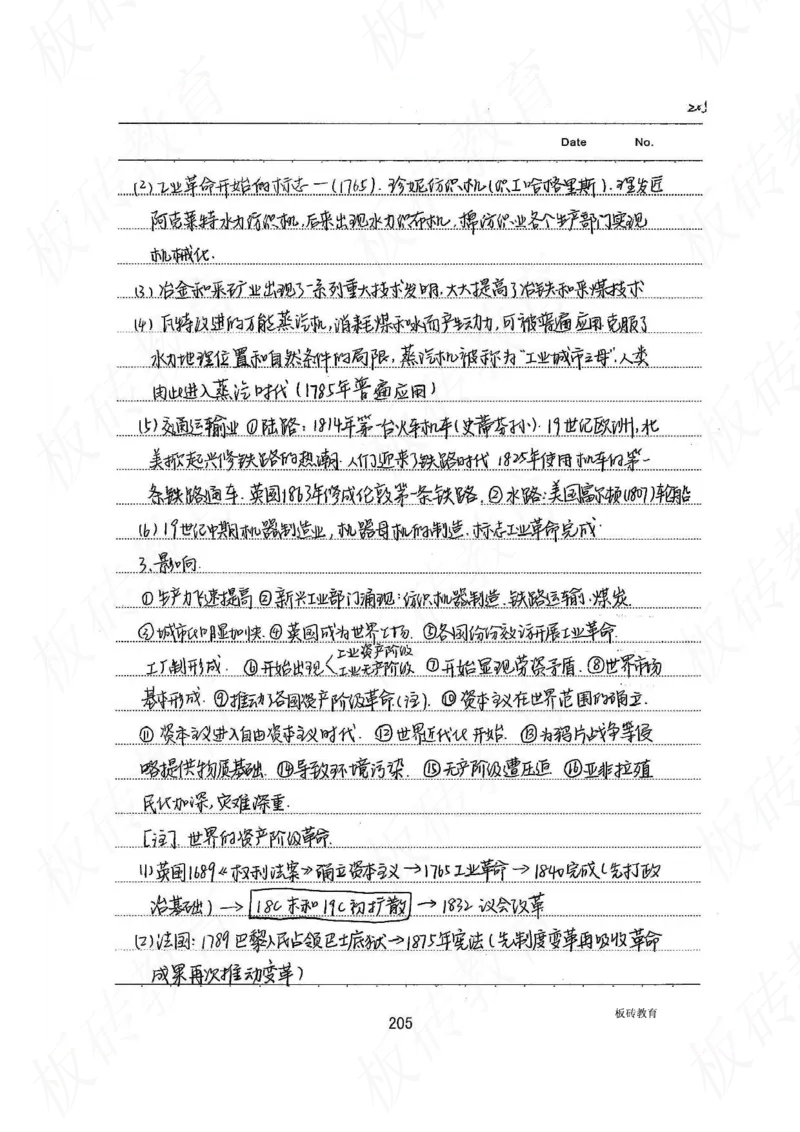 205
Date No.
(2)工业革命开始的标志—(1765).珍妮纺织机(织工哈格里斯).理发匠
阿克莱特水力纺织机,后来出现水力织布机,棉纺织业各个生产部门实现
机械化.
(3)冶金和采矿业出现了一系列重大技术发明.大大提高了冶铁和采煤技术
(4)瓦特改进的万能蒸汽机,消耗煤和水而产生动力,可被普遍应用克服了
水力地理位置和自然条件的局限,蒸汽机被称为“工业城市之母”.人类
由此进入蒸汽时代(1785年普遍应用)
(5)交通运输业 ①陆路:1814年第一台火车机车(史蒂芬孙).19世纪欧洲,北
美掀起兴修铁路的热潮.人们迎来了铁路时代 1825年使用机车的第一
条铁路通车.英国1863年修成伦敦第一条铁路.②水路:美国富尔顿(1807)轮船
(6)19世纪中期机器制造业,机器母机的制造.标志工业革命完成.
3.影响.
①生产力飞速提高②新兴工业部门涌现:纺织机器制造.铁路运输.煤炭.
③城市化明显加快.④英国成为世界工场.⑤各国纷纷效法开展工业革命.
工厂制形成. ⑥开始出现<工业资产阶级 工业无产阶级 ⑦开始显现劳资矛盾.⑧世界市场
基本形成.⑨推动了各国资产阶级革命(注).⑩资本主义在世界范围的确立.
⑪资本主义进入自由资本主义时代.⑫世界近代化开始.⑬为鸦片战争等侵
略提供物质基础.⑭导致环境污染.⑮无产阶级遭压迫.⑯亚非拉殖
民化加深,灾难深重.
[注].世界的资产阶级革命.
(1)英国1689《权利法案》确立资本主义→1765工业革命→1840完成(先打政
治基础)→18C末和19C初扩散→1832议会改革
(2)法国:1789巴黎人民占领巴士底狱→1875年宪法(先制度变革再吸收革命
成果再次推动变革)
205
板砖教育